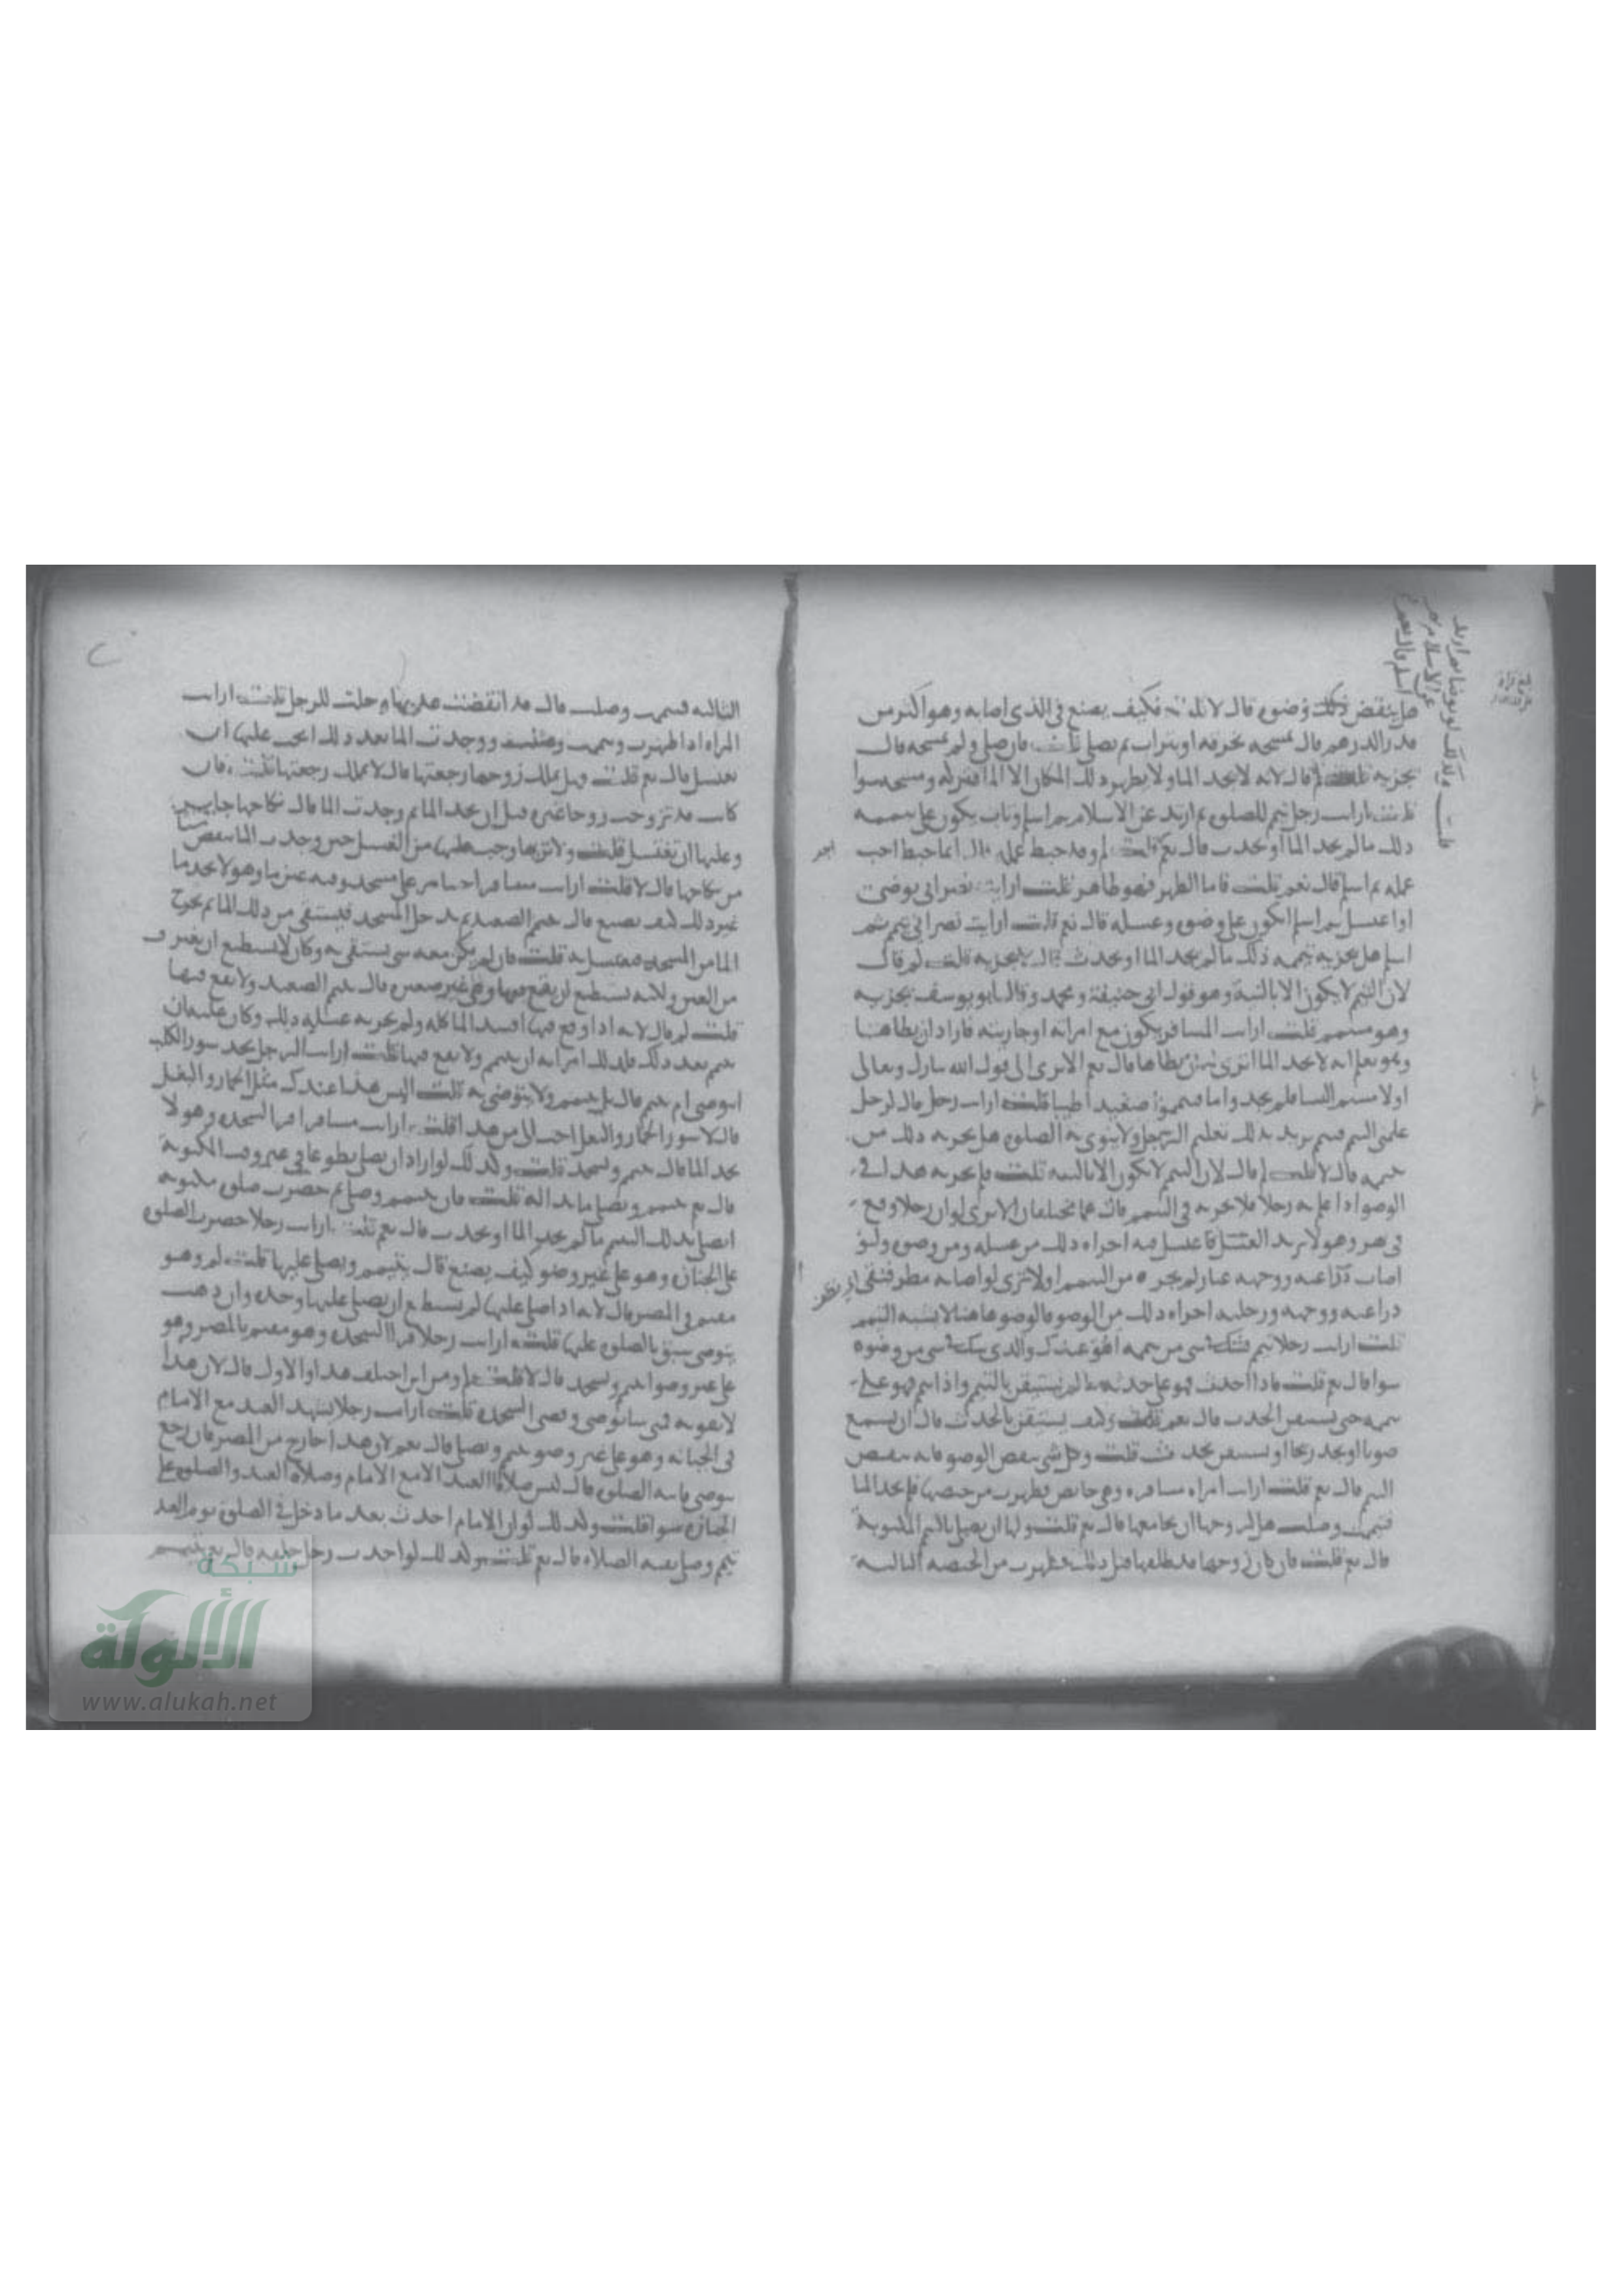 هل ينقض ذلك وضوه قال لا قلت فكيف يصنع في الذي اصابه وهو اكثر من
قدر الدرهم قال يمسحه بخرقه او بتراب ثم يصلي قلت فان صلي ولم يمسحه قال
يجزيه قلت لم قال لانه لا يجد الما ولا يطهر ذلك المكان الا الما فتركه ومسحه سوا
قلت ارايت رجل تيمم للصلوه ثم ارتد عن الاسلام ثم اسلم وتاب يكون علي تيممه
ذلك ما لم يجد الما او يحدث قال نعم قلت لم وقد حبط عمله قال انما حبط اجر
عمله ثم اسلم قال نعم قلت فاما الطهر فهو طاهر قلت ارايت نصراني توضي
او اغتسل ثم اسلم ايكون علي وضوه وغسله قال نعم قلت ارايت نصراني تيمم ثم
اسلم هل يجزيه تيممه ذلك ما لم يجد الما او يحدث قال لا يجزيه قلت لم قال
لان التيمم لا يكون الا بالنية وهو قول ابي حنيفة ومحمد وقال ابو يوسف يجزيه
وهو متيمم قلت ارايت المسافر يكون مع امراته او جاريته فاراد ان يطاها
وهو يعلم انه لا يجد الما اترى له ان يطاها قال نعم الا ترى الى قول الله تبارك وتعالى
او لامستم النسا فلم تجدوا ما فتيمموا صعيدا طيبا قلت ارايت رجل قال لرجل
علمني التيمم فتيمم يريد بذلك تعليم الرجل ولا ينوي به الصلوه هل يجزيه ذلك من
تيممه قال لا قلت لم قال لان التيمم لا يكون الا بالنيه قلت فلم يجزيه هذا في
الوضو اذا علمه رجلا فلا يجزيه في التيمم قال هما مختلفان الا ترى لو ان رجلا وقع
في نهر وهو لا يريد الغسل فاغتسل فيه اجزاه ذلك من غسله ومن وضوه ولو
اصاب ذراعيه ووجهه غبار لم يجزه من التيمم اولا ترى لو اصابه مطر فنقي
ذراعيه ووجهه ورجليه اجزاه ذلك من الوضو فالوضو هاهنا لا يشبه التيمم
قلت ارايت رجلا تيمم فشك في شي من تيممه اهو عندك والذي يشك في شي من وضوه
سوا قال نعم قلت فاذا احدث فهو علي حدثه ما لم يستيقن بالتيمم واذا تيمم فهو علي
تيممه حتي يستيقن الحدث قال نعم قلت وكيف يستيقن بالحدث قال ان يسمع
صوتا او يجد ريحا او يستيقن بحدث قلت وكل شي ينقض الوضو فانه ينقض
التيمم قال نعم قلت ارايت امراه مسافره وهي حائض فطهرت من حيضها فلم تجد الما
فتيممت وصلت هل لزوجها ان يجامعها قال نعم قلت ولها ان تصلي بالتيمم المكتوبة
قال نعم قلت فان كان زوجها قد طلقها قبل ذلك فطهرت من الحيضه الثالثة
قلت وكذلك لو توضا ثم ارتد
عن الاسلام ثم
اسلم قال نعم
الثالثه فتيممت وصلت قال قد انقضت عدتها وحلت للرجل قلت ارايت
المراه اذا طهرت وتيممت وصلت ووجدت الما بعد ذلك ايجب عليها ان
تغتسل قال نعم قلت وهل يملك زوجها رجعتها قال لا يملك رجعتها قلت فان
كانت قد تزوجت زوجا غيره قبل ان تجد الما ثم وجدت الما قال نكاحها جايز
وعليها ان تغتسل قلت ولا ترى ما وجب عليها من الغسل حين وجدت الما ينقض شيا
من نكاحها قال لا قلت ارايت مسافرا جنبا مر علي مسجد وفيه عين ما وهو لا يجد ما
غير ذلك كيف يصنع قال يتيمم الصعيد ثم يدخل المسجد فيستقي من ذلك الما ثم يخرج
الما من المسجد فيغتسل به قلت فان لم يكن معه شي يستقي به وكان لا يستطيع ان يغترف
من العين ولكنه يستطيع ان يقع فيها وهي غير قال يتيمم الصعيد ولا يقع فيها
قلت لم قال لانه اذا وقع فيها افسد الما كله ولم يجزيه غسله ذلك وكان عليه ان
يتيمم بعد ذلك فلذلك امرته ان يتيمم ولا يقع فيها قلت ارايت الرجل يجد سور الكلب
ايتوضي به ام يتيمم قال بل يتيمم ولا يتوضي به قلت اليس هذا عندك مثل الحمار والبغل
قال لا سور الحمار والبغل احب الي من هذا قلت ارايت مسافرا قرا السجده وهو لا
يجد الما قال يتيمم ويسجد قلت وكذلك لو اراد ان يصلي تطوعا في غير وقت المكتوبة
قال نعم يتيمم ويصلي ما بدا له قلت فان تيمم وصلي ثم حضرت صلوه مكتوبه
ايصلي بذلك التيمم ما لم يجد الما او يحدث قال نعم قلت ارايت رجلا حضرت الصلوه
علي الجنازه وهو علي غير وضو كيف يصنع قال يتيمم ويصلي عليها قلت لم وهو
مقيم في المصر قال لانه اذا صلي عليها لم يستطع ان يصلي عليها وحده وان ذهب
يتوضي سبق بالصلوه عليها قلت ارايت رجلا قرا السجده وهو مقيم بالمصر وهو
علي غير وضو ايتيمم ويسجد قال لا قلت لم ومن اين اختلف هذا والاول قال لان هذا
لا يفوته متي شا توضي وقضى السجده قلت ارايت رجلا يشهد العيد مع الامام
في الجبانه وهو علي غير وضو يتيمم ويصلي قال نعم لان هذا خارج من المصر فان رجع
يتوضي فاته الصلوه قال ليس صلاة العيد الا مع الامام وصلاة العيد والصلوه علي
الجنازه سوا قلت وكذلك لو ان الامام احدث بعد ما دخل في الصلوه يوم العيد
تيمم وصلي بقية الصلاه قال نعم قلت وكذلك لو احدث رجل خلفه قال نعم يتيمم
شبكة
الألوكة
www.alukah.net